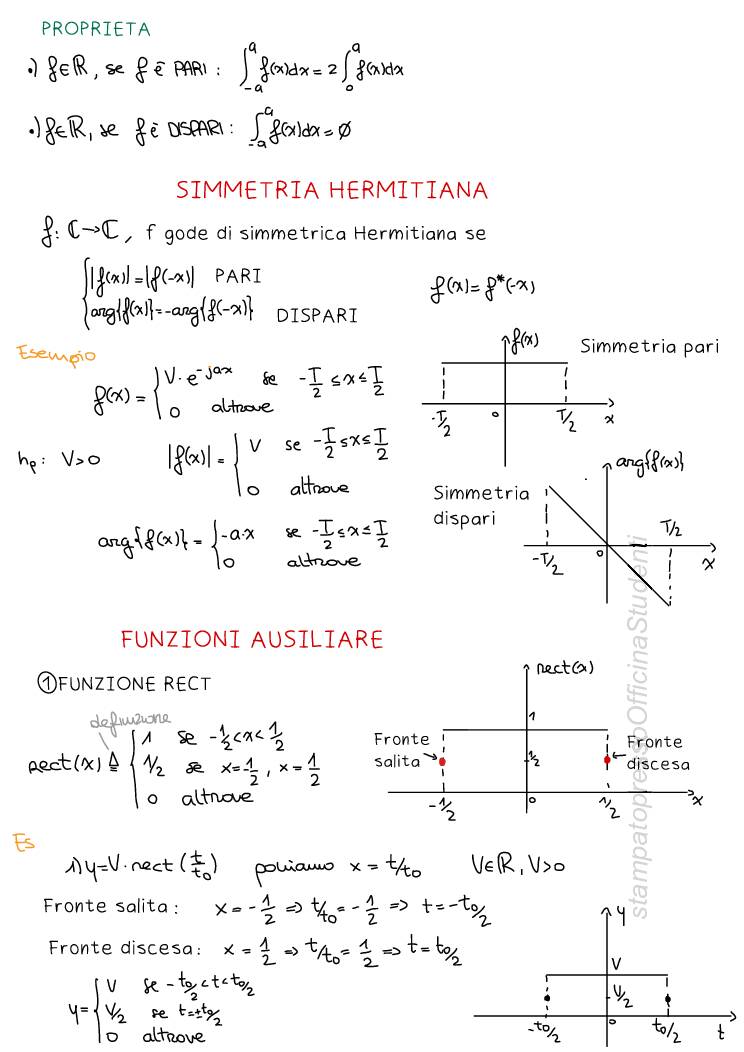 PROPRIETA
•) f∈ℝ, se f è PARI: ∫₋ₐᵃ f(x)dx = 2 ∫₀ᵃ f(x)dx
•) f∈ℝ, se f è DISPARI: ∫₋ₐᵃ f(x)dx = ∅
SIMMETRIA HERMITIANA
f: ℂ→ℂ, f gode di simmetrica Hermitiana se
|f(x)| = |f(-x)| PARI
f(x) = f*(-x)
arg{f(x)} = -arg{f(-x)} DISPARI
Esempio
f(x)
Simmetria pari
f(x) = { V·e^-jax se -T/2 ≤ x ≤ T/2
0 altrove
-T/2 0 T/2 x
hp: V>0 |f(x)| = { V se -T/2 ≤ x ≤ T/2
0 altrove
arg{f(x)}
Simmetria
dispari
arg{f(x)} = { -a·x se -T/2 ≤ x ≤ T/2
0 altrove
-T/2 0 T/2 x
FUNZIONI AUSILIARE
① FUNZIONE RECT
rect(x)
definizione
rect(x) ≜ { 1 se -1/2 < x < 1/2
1/2 se x = -1/2, x = 1/2
0 altrove
1
Fronte
salita
1/2
Fronte
discesa
-1/2 0 1/2 x
Es
1) y = V·rect(t/t0) poniamo x = t/t0 V∈ℝ, V>0
Fronte salita: x = -1/2 => t/t0 = -1/2 => t = -t0/2
Fronte discesa: x = 1/2 => t/t0 = 1/2 => t = t0/2
y = { V se -t0/2 < t < t0/2
V/2 se t = ±t0/2
0 altrove
y
V
V/2
-t0/2 0 t0/2 t
stampatopressoOfficinaStudenti